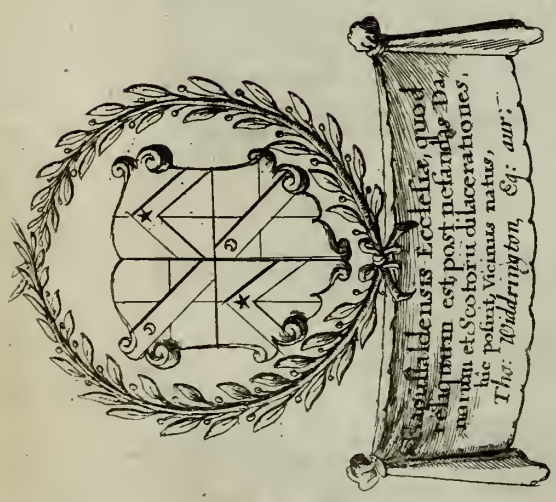 Hagustaldensis Ecclesiæ, quod
reliquum est, post nefandas Da,
narum et Scotorū dilacerationes,
hic posuit, Vicinus natus,
Tho: Widdrington, Eq: aur: